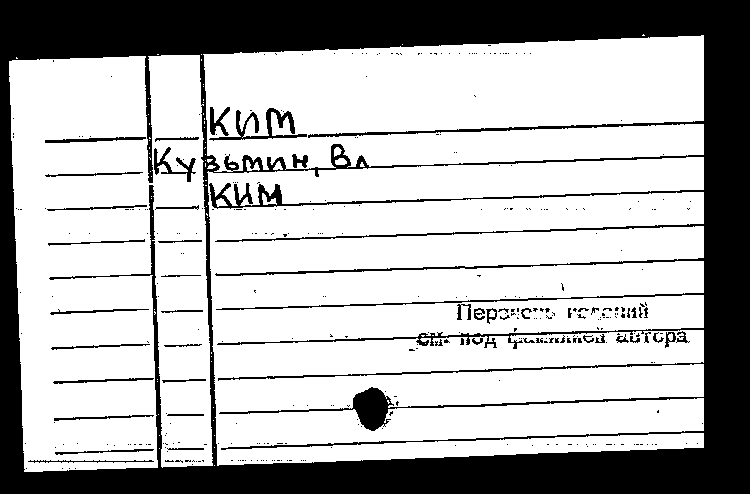 КИМ
Кузьмин, Вл
КИМ
Перечень изданий
см. под фамилией автора